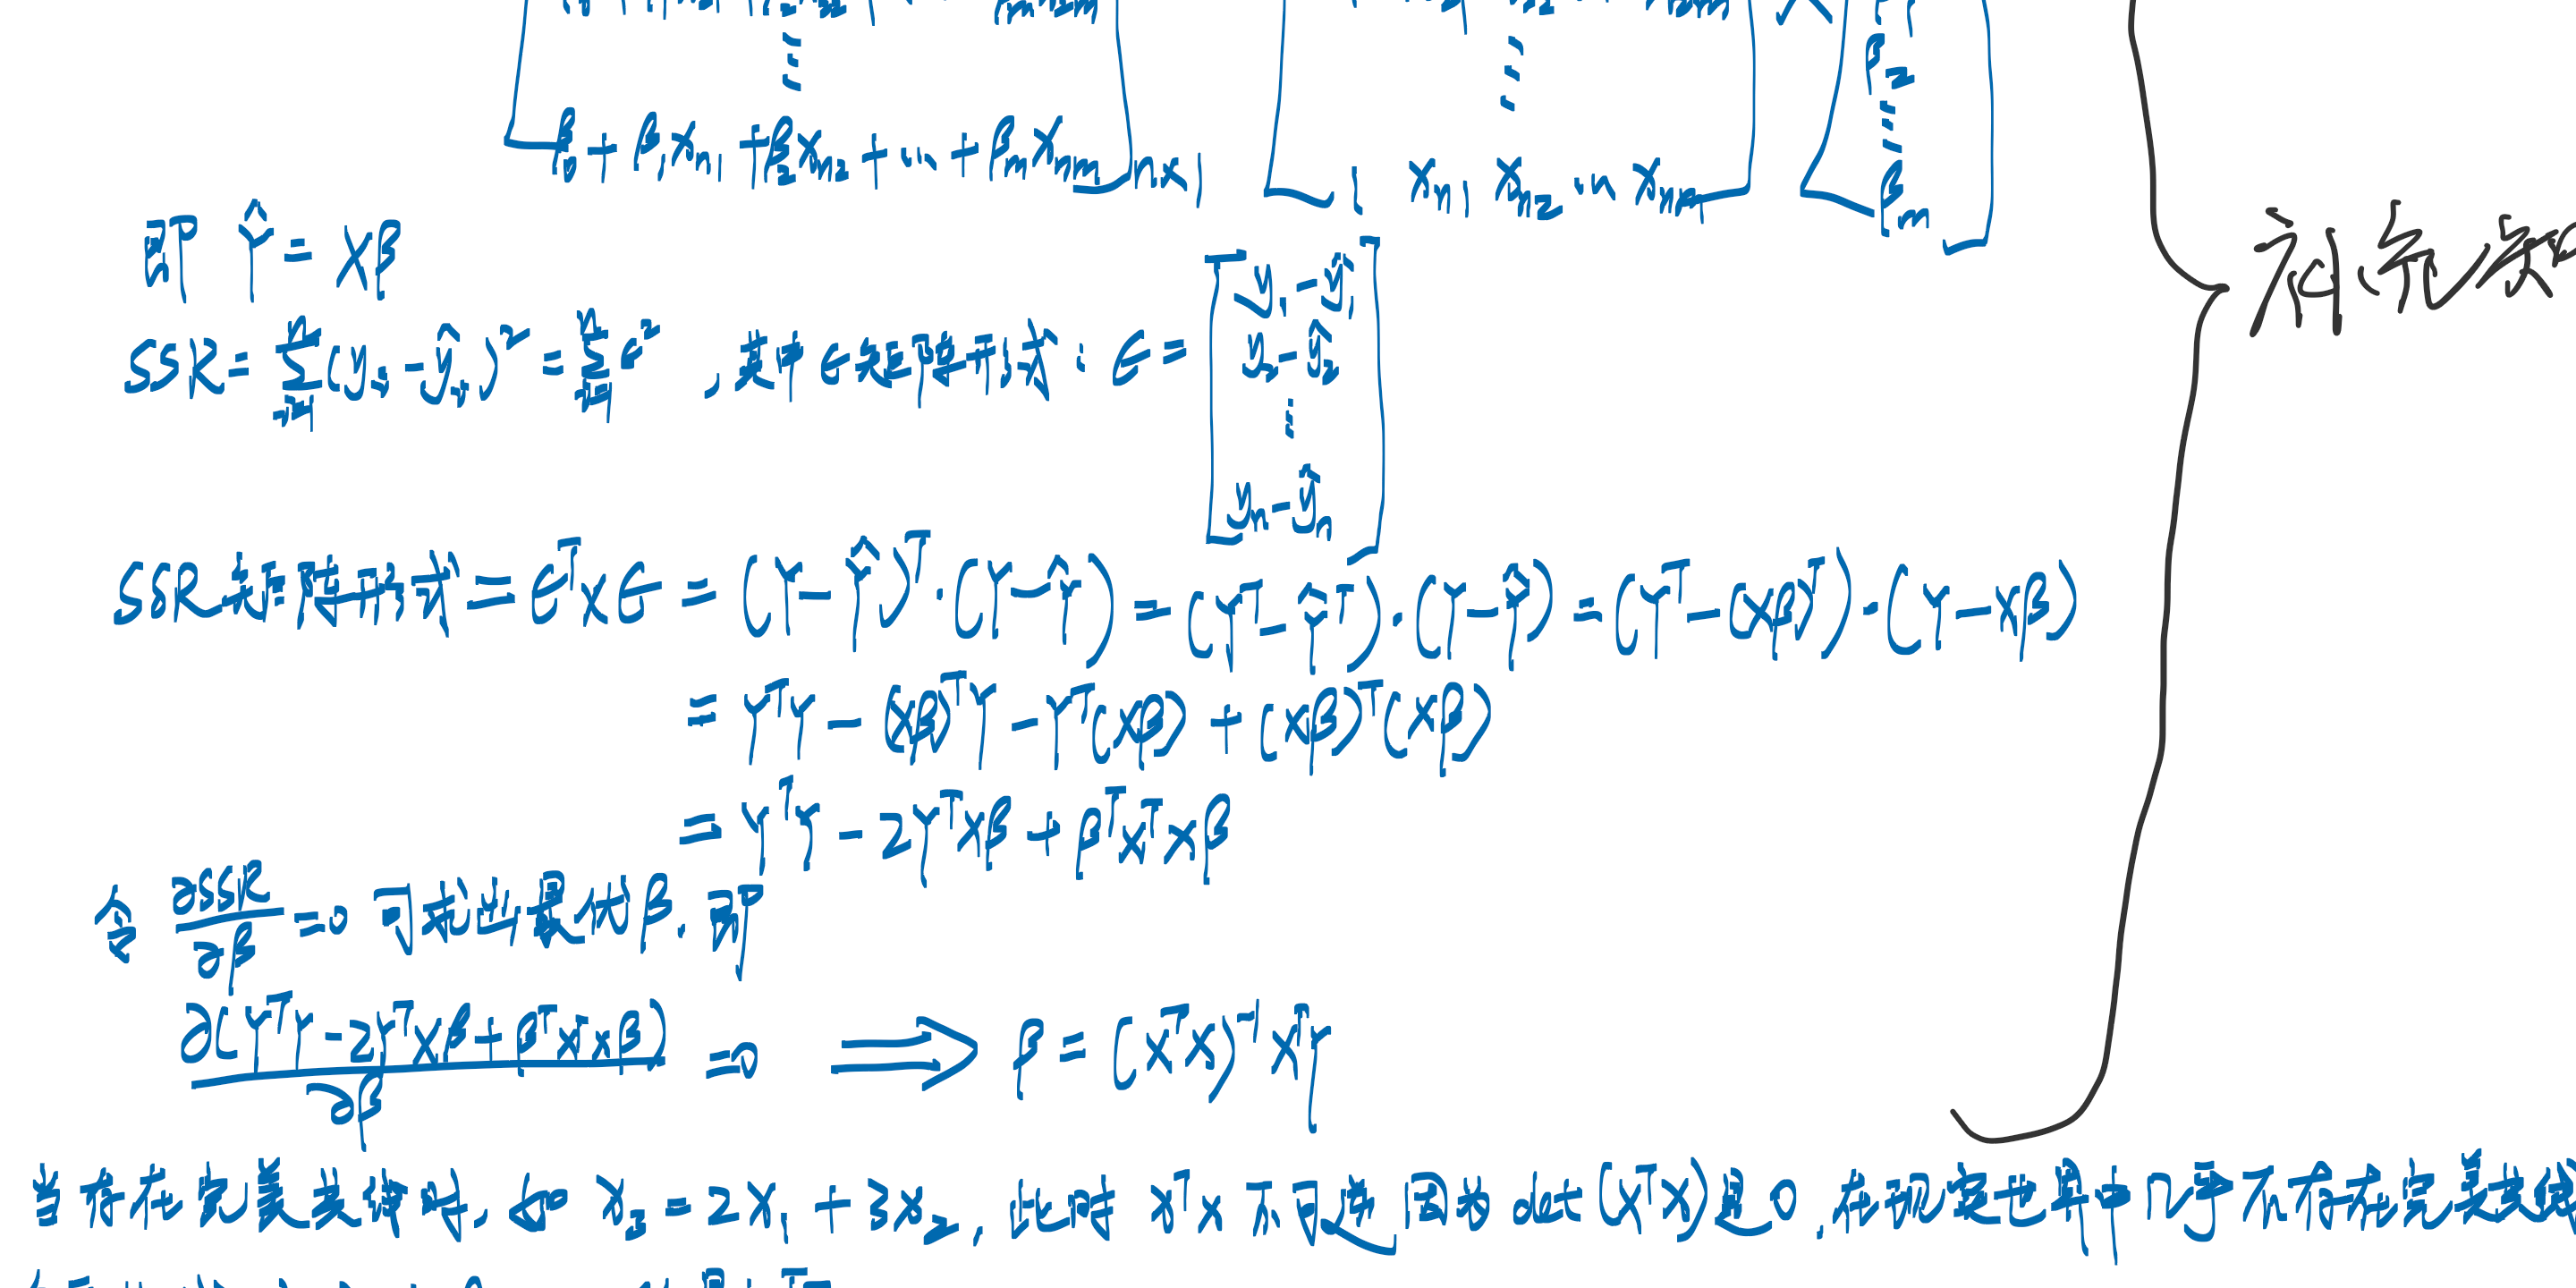 β₀ + β₁x_{n1} + β₂x_{n2} + ... + β_m x_{nm} n×1 1 x_{n1} x_{n2} ... x_{nm} β₂ ⋮ β_m
即 Ŷ = Xβ
补充知
SSR = Σ_{i=1}^{n} (y_i - ŷ_i)² = Σ_{i=1}^{n} ϵ² , 其中 ϵ 矩阵形式: ϵ = [y₁ - ŷ₁
y₂ - ŷ₂
⋮
y_n - ŷ_n]
SSR 矩阵形式 = ϵᵀ × ϵ = (Y - Ŷ)ᵀ · (Y - Ŷ) = (Yᵀ - Ŷᵀ) · (Y - Ŷ) = (Yᵀ - (Xβ)ᵀ) · (Y - Xβ)
= YᵀY - (Xβ)ᵀY - Yᵀ(Xβ) + (Xβ)ᵀ(Xβ)
= YᵀY - 2YᵀXβ + βᵀXᵀXβ
令 ∂SSR/∂β = 0 可求出最优 β. 即
∂(YᵀY - 2YᵀXβ + βᵀXᵀXβ)/∂β = 0 ⟹ β = (XᵀX)⁻¹XᵀY
当存在完美共线时, 如 x₃ = 2x₁ + 3x₂, 此时 XᵀX 不可逆, 因为 det(XᵀX) 是 0. 在现实世界中几乎不存在完美共线